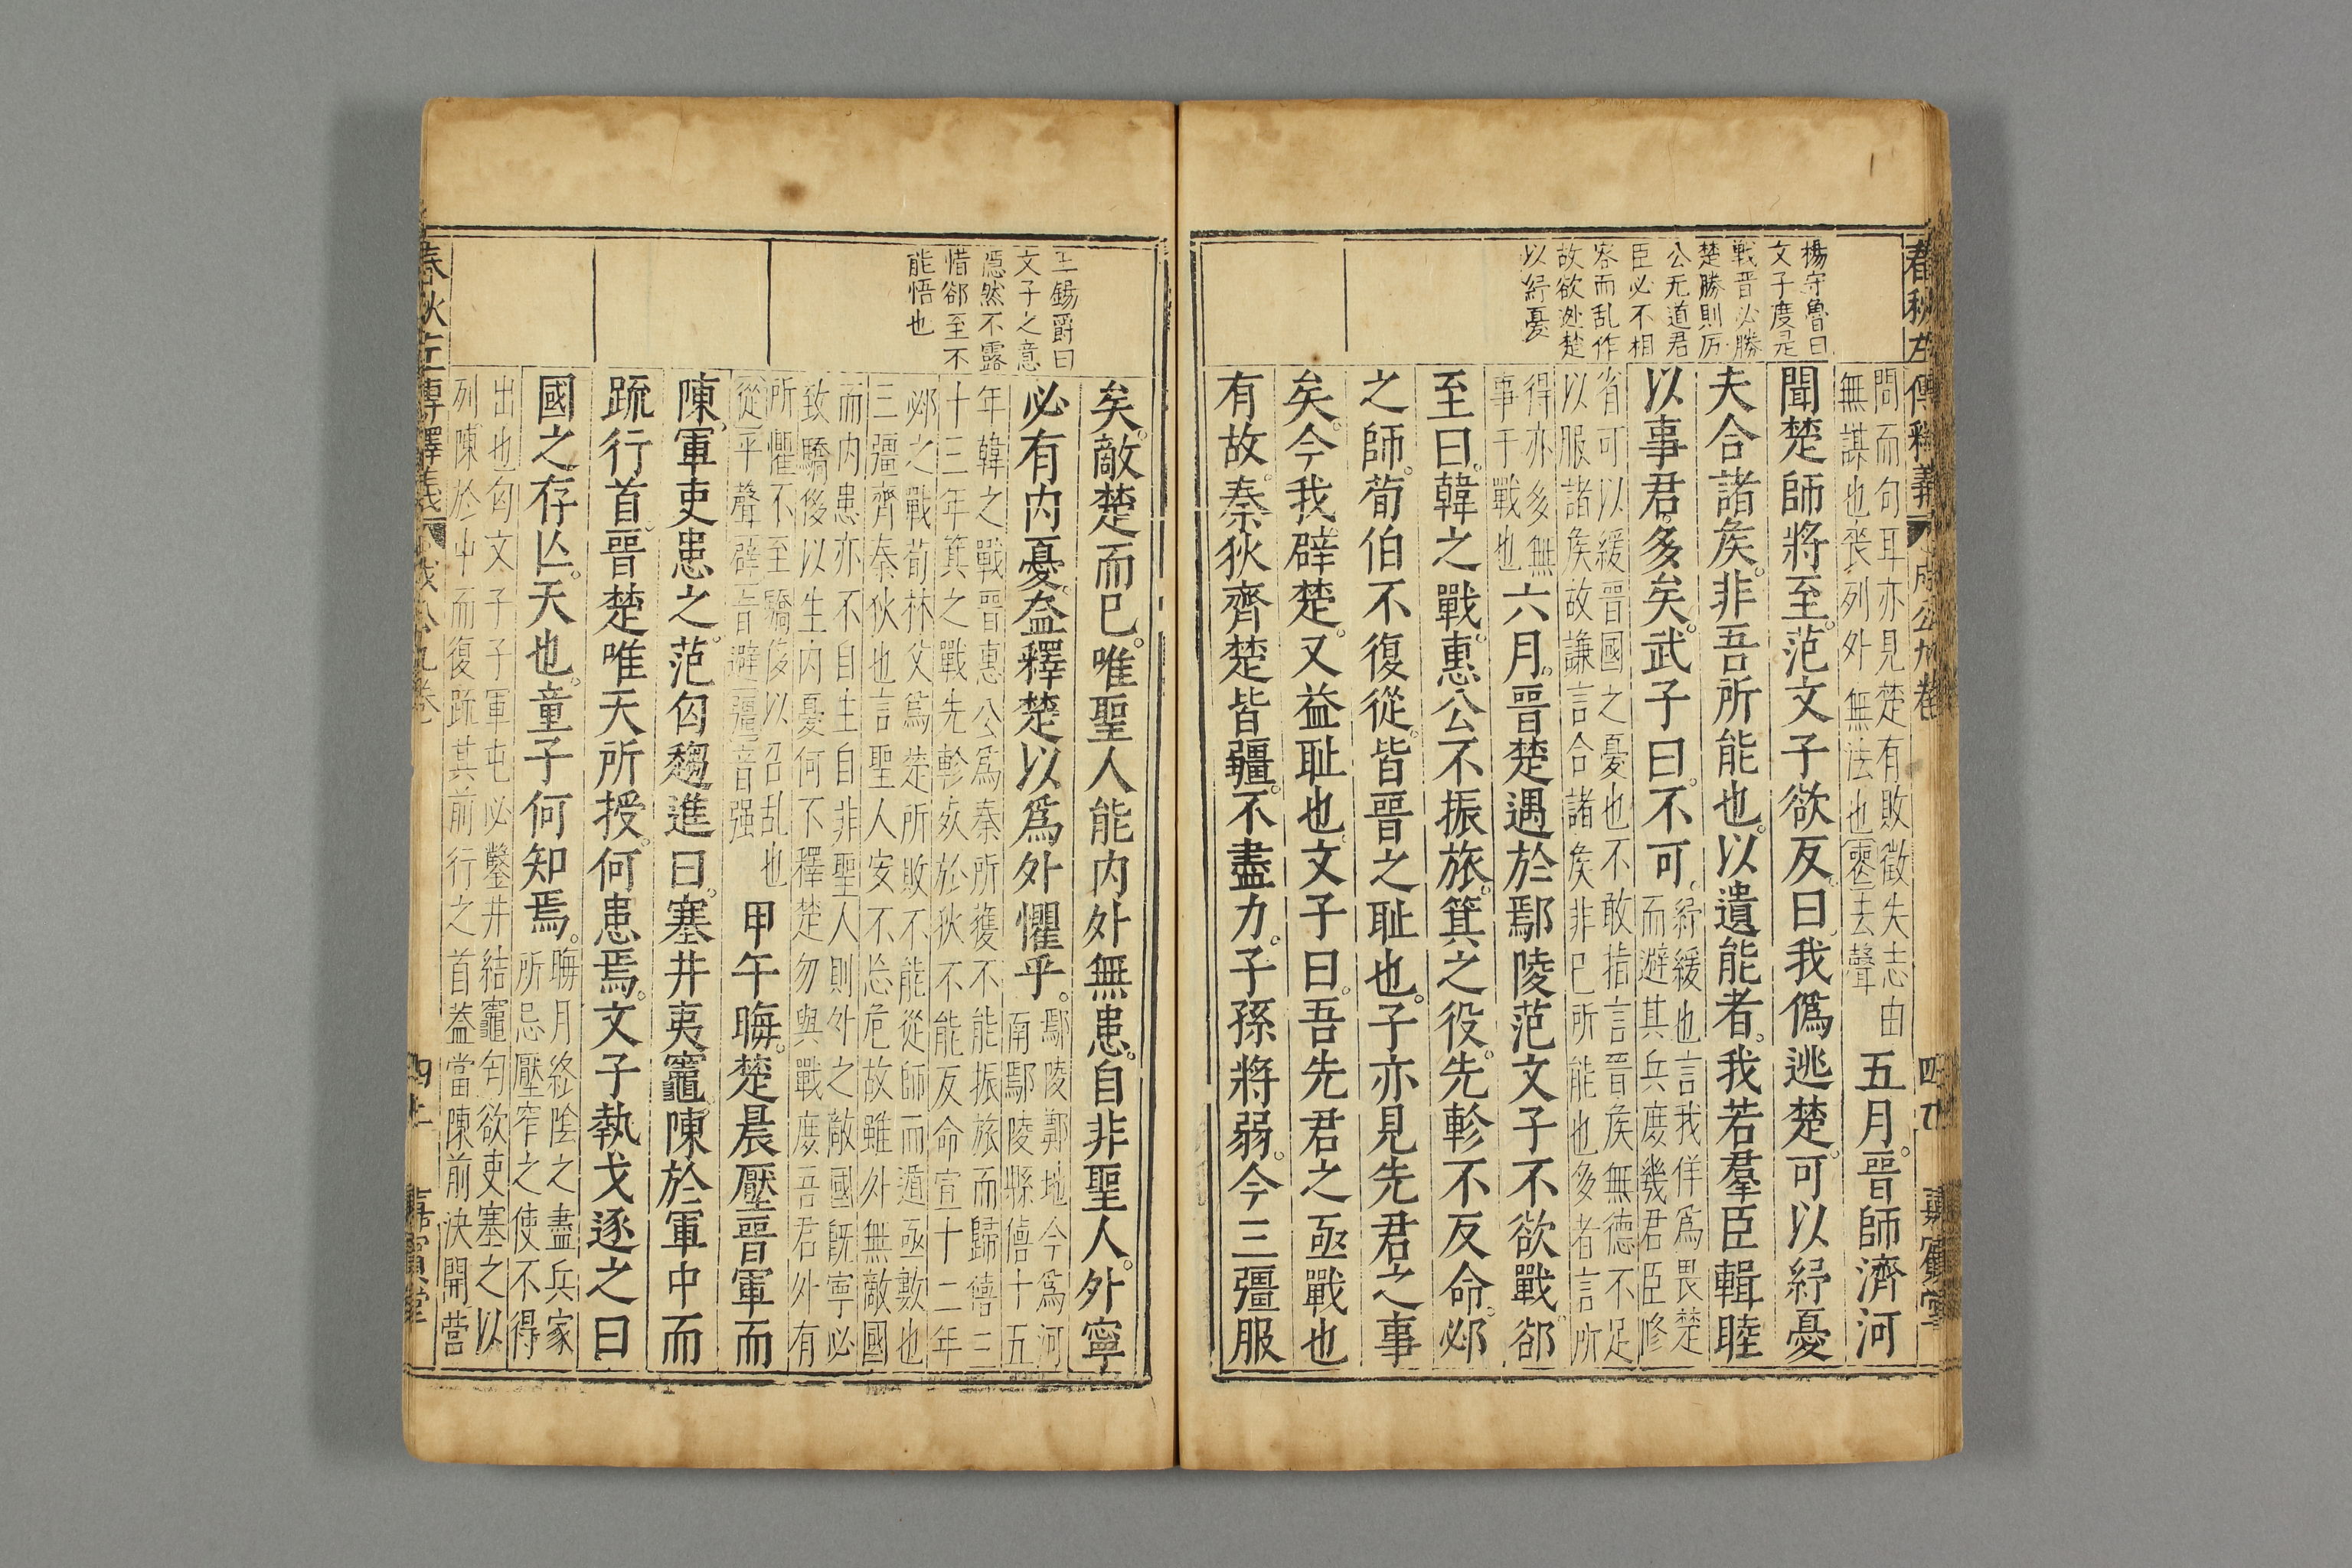 楊守魯曰
文子度是
戰晋必勝
楚勝則厉
公无道君
臣必不相
容而乱作
故欲逊楚
以紓憂
問而句耳亦見楚有敗徵失志由
無謀也喪列外無法也喪去聲
五月。晋師濟河
聞楚師將至。范文子欲反。曰我僞逃楚。可以紓憂
夫合諸矦。非吾所能也。以遺能者。我若羣臣輯睦
以事君。多矣。武子曰。不可。
紓緩也言我佯爲畏楚
而避其兵庶幾君臣修
省可以緩晋國之憂也不敢指言晋矦無德不足
以服諸矦故謙言合諸矦非巳所能也多者言所
得亦多無
事于戰也
六月。晋楚遇於鄢陵范文子不欲戰。郤
至曰。韓之戰。惠公不振旅。箕之役。先軫不反命。邲
之師。荀伯不復從。皆晋之耻也。子亦見先君之事
矣。今我辟楚。又益耻也。文子曰。吾先君之亟戰也
有故。秦狄齊楚皆疆。不盡力。子孫將弱。今三彊服
春秋左傳釋義
成公九卷
王錫爵曰
文子之意
隱然不露
惜郤至不
能悟也
矣。敵楚而巳。唯聖人能内外無患。自非聖人。外寧
必有内憂。盍釋楚以爲外懼乎。
鄢陵鄭地今爲河
南鄢陵縣僖十五
年韓之戰晋惠公爲秦所獲不能振旅而歸僖三
十三年箕之戰先軫死於狄不能反命宣十二年
邲之戰荀林父爲楚所敗不能從師而遁亟數也
三彊齊秦狄也言聖人安不忘危故雖外無敵國
而内患亦不自生自非聖人則外之敵國旣寧必
致驕侈以生内憂何不釋楚勿與戰庶吾君外有
所懼不至驕侈以召乱也
從平聲辟音避彊音强
甲午晦。楚晨壓晋軍而
陳。軍吏患之。范匄趨進曰。塞井夷竈。陳於軍中而
䟽行首。晋楚唯天所授。何患焉。文子執戈逐之曰
國之存亾。天也。童子何知焉。
晦月終陰之盡兵家
所忌壓窄之使不得
出也匄文子子軍屯必鑿井結竈匄欲吏塞之以
列陳於中而復䟽其前行之首葢當陳前決開營
春秋左傳釋義
成公九卷